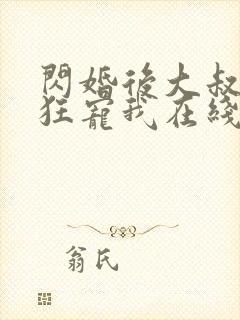 閃婚後大叔
狂寵我在綫
翁氏